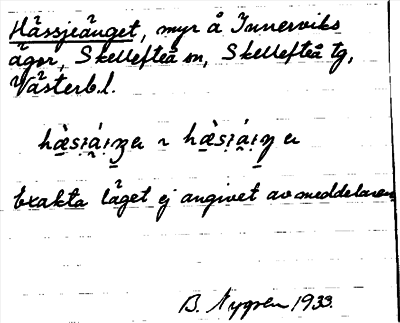 Hässjeänget, myr å Innerviks
ägor, Skellefteå sn, Skellefteå tg,
Västerb.l.
Exakta läget ej angivet av meddelaren
B. Nygren 1933.